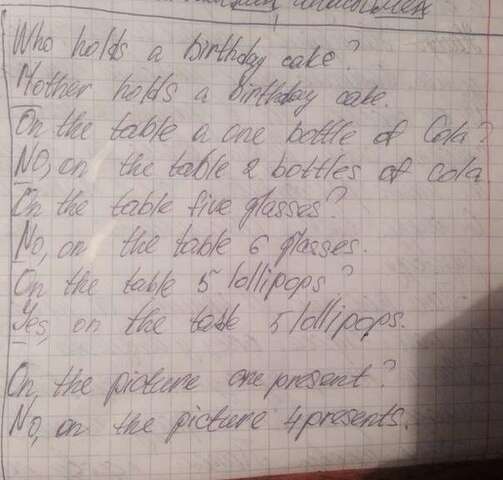 Who holds a birthday cake?
Mother holds a birthday cake.
On the table a one bottle of Cola?
No, on the table 2 bottles of cola
On the table five glasses?
No, on the table 6 glasses.
On the table 5 lollipops?
Yes, on the table 5 lollipops.
On, the picture one present?
No, on the picture 4 presents.